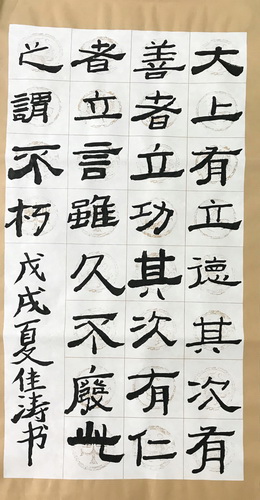 大上有立德其次有
善者立功其次有仁
者立言雖久不廢此
之謂不朽
戊戌夏佳涛书